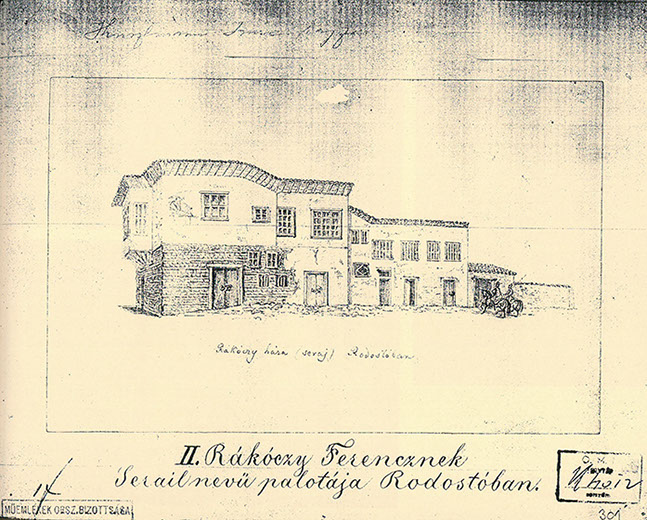 Rákóczy háza (seraj) Rodostóban
II. Rákóczy Ferencznek
Serail nevű palotája Rodostóban.
MŰEMLÉKEK ORSZ. BIZOTTSÁGA
301